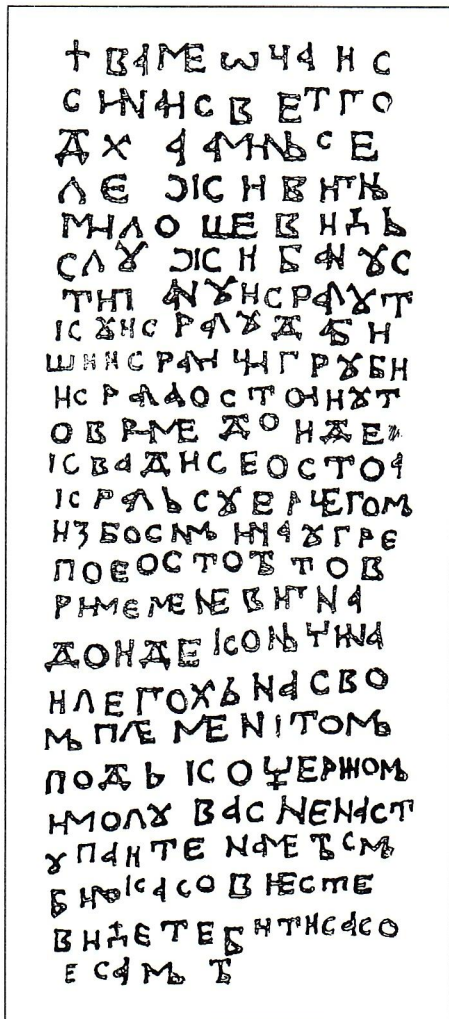 † ВАИМЕ Ѡ Ч А И С
С ИНАИС В ЕТГО
Д Х А АМНЬ С Е
ЛЕ ЖИ ВИГНЬ
МИЛОШЕВИЋЬ
СЛУ ЖИ БАНУ С
ТИП АНУ И КРАЛУ Т
КУ И КРАЛУ ДАБИ
ШИ И КРАЛИЧИ ГРУБИ
И КРАЛА ОСТОИ И У Т
О ВРИМЕ ДОИДЕ И
КВАДИ СЕ ОСТОА
КРАЛЬ С УЕРЧЕГОМЬ
И З БОСНМЬ И НА УГРЕ
ПОЕ ОСТОѢ ТО В
РИМЕ МЕНЕ ВИГНА
ДОИДЕ КОНЬЧИНА
И ЛЕГОХЬ НА СВО
МЬ ПЛЕМЕНІТОМЬ
ПОДЬ КОЧЕРИНОМЬ
И МОЛУ ВАС НЕ НАСТ
УПАИТЕ НА МЕ Ѣ СМЬ
БИ КАКО В ИЕСТЕ
ВИЋЕТЕ БИТИ КАКО
Е САМЬ Ѣ